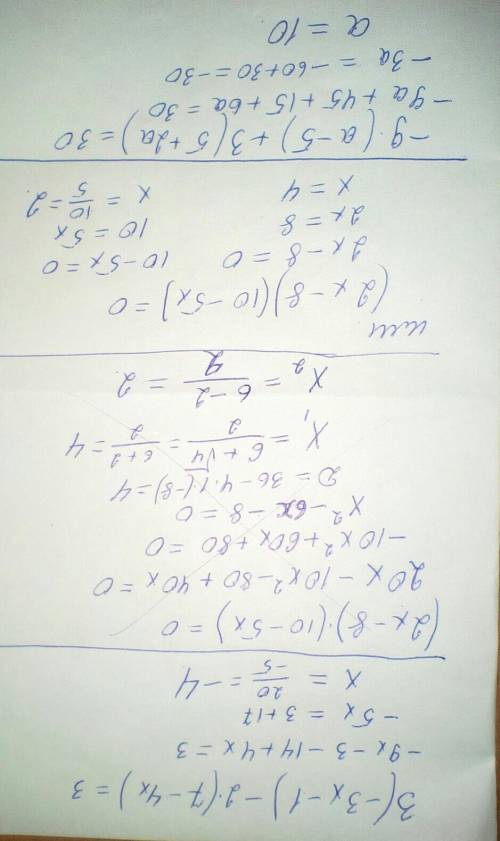 3(-3x-1)-2·(7-4x)=3
-9x-3-14+4x=3
-5x=3+17
x = 20/-5 = -4
(2x-8)·(10-5x)=0
20x-10x²-80+40x=0
-10x²+60x+80=0
x²-6x-8=0
D=36-4·1·(-8)=4
X₁ = (6+√4)/2 = (6+2)/2 = 4
X₂ = (6-2)/2 = 2
или
(2x-8)(10-5x)=0
2x-8=0 10-5x=0
2x=8 10=5x
x=4 x=10/5=2
-9·(a-5)+3(5+2a)=30
-9a+45+15+6a=30
-3a=-60+30=-30
a=10